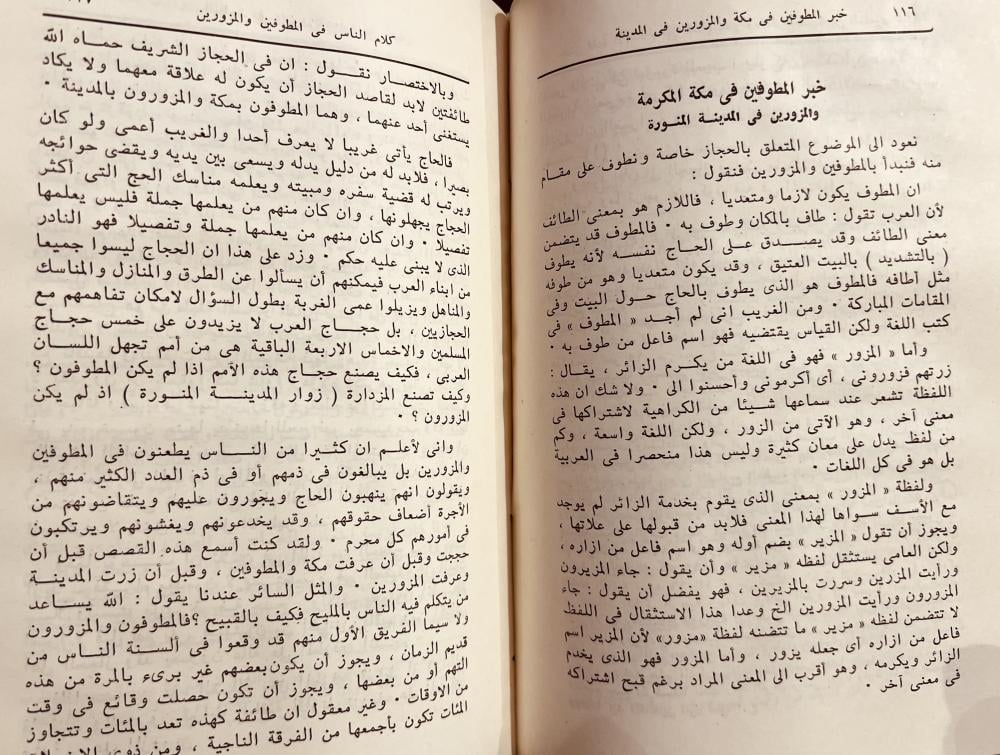 ١١٦
خبر المطوفين فى مكة والمزورين فى المدينة
خبر المطوفين فى مكة المكرمة
والمزورين فى المدينـة المنـورة
نعود الى الموضوع المتعلق بالحجاز خاصة ونطوف على مقام
منه فنبدأ بالمطوفين والمزورين فنقول :
ان المطوف يكون لازما ومتعديا ، فاللازم هو بمعنى الطائف
لأن العرب تقول : طاف بالمكان وطوف به ٠ فالمطوف قد يتضمن
معنى الطائف وقد يصـدق علـى الحـاج نفسـه لأنه يطوف
( بالتشديد ) بالبيت العتيق ، وقد يكون متعديا وهو من طوفه
مثل أطافه فالمطوف هو الذى يطوف بالحاج حـول البيت وفى
المقامات المباركة ٠ ومن الغريب انى لم أجـد « المطوف » فى
كتب اللغة ولكن القياس يقتضيه فهو اسم فاعل من طوف به ٠
وأما « المزور » فهو فى اللغة من يكـرم الزائر ، يقال :
زرتهم فزورونى ، أى أكرمونى وأحسنوا الى ٠ ولا شك ان هذه
اللفظة تشعر عند سماعها شـيئا من الكراهية لاشتراكها فى
معنى آخر ، وهو الآتى من الزور ، ولكن اللغة واسعة ، وكم
من لفظ يدل على معان كثيرة وليس هذا منحصرا فى العربية
بل هو فى كل اللغات ٠
ولفظة « المزور » بمعنى الذى يقوم بخدمة الزائر لم يوجد
مع الأسـف سـواها لهذا المعنى فلابد من قبولها على علاتها ،
ويجوز أن تقول « المزير » بضم أوله وهو اسم فاعل من ازاره ،
ولكن العامى يستثقل لفظه « مزير » وأن يقول : جاء المزيرون
ورأيت المزرين وسررت بالمزيرين ، فهو يفضل أن يقول : جاء
المزورون ورأيت المزورين الخ وعدا هذا الاستثقال فى اللفظ
لا تتضمن لفظه « مزير » ما تتضنه لفظة «مزور» لأن المزير اسم
فاعل من ازاره أى جعله يزور ، وأما المزور فهو الذى يخدم
الزائر ويكرمه ، وهو أقرب الى المعنى المراد برغم قبح اشتراكه
فى معنى آخر ٠
كلام الناس فى المطوفين والمزورين
وبالاختصار نقـول : ان فى الحجاز الشريف حمـاه الله
طائفتين لابد لقاصد الحجاز أن يكون له علاقة معهما ولا يكاد
يستغنى أحد عنهما ، وهما المطوفون بمكة والمزورون بالمدينة ٠
فالحاج يأتى غريبا لا يعرف أحدا والغريب أعمى ولو كان
بصيرا ، فلابد له من دليل يدله ويسعى بين يديه ويقضى حوائجه
ويرتب له قضية سفره ومبيته ويعلمه مناسك الحج التى أكثر
الحجاج يجهلونها ، وان كان منهم من يعلمها جملة فليس يعلمها
تفصيلا ٠ وان كان منهم من يعلمها جملة وتفصيلا فهو النادر
الذى لا يبنى عليه حكم ٠ وزد على هذا ان الحجاج ليسوا جميعا
من ابناء العرب فيمكنهم أن يسألوا عن الطرق والمنازل والمناسك
والمناهل ويزيلوا عمى الغربة بطول السؤال لامكان تفاهمهم مع
الحجازيين ، بل حجـاج العرب لا يزيدون على خمس حجـاج
المسلمين والاخماس الاربعة الباقية هى من أمم تجهل اللسـان
العربى ، فكيف يصنع حجاج هذه الأمم اذا لم يكن المطوفون ؟
وكيف تصنع المزدارة ( زوار المدينـة المنـورة ) اذ لم يكن
المزورون ؟ ٠
وانى لأعلـم ان كثيـرا من النـاس يطعنون فى المطوفين
والمزورين بل يبالغون فى ذمهم أو فى ذم العدد الكثير منهم ،
ويقولون انهم ينهبون الحاج ويجورون عليهم ويتقاضونهم من
الأجرة أضعاف حقوقهم ، وقد يخدعونهم ويغشونهم ويرتكبون
فى أمورهم كل محرم ٠ ولقد كنت أسمع هذه القصص قبل أن
حججت وقبل أن عرفت مكة والمطوفين ، وقبل أن زرت المدينـة
وعرفت المزورين ٠ والمثل السائر عندنا يقول : الله يسـاعد
من يتكلم فيه الناس بالمليح فكيف بالقبيح ؟ فالمطوفون والمزورون
ولا سيما الفريق الأول منهم قد وقعوا فى ألسنة الناس من
قديم الزمان ، ويجوز أن يكون بعضهم غير برىء بالمرة من هذه
التهم أو من بعضها ، ويجوز أن تكون حصلت وقائع فى وقت
من الاوقات ٠ وغير معقول ان طائفة كهذه تعد بالمئات وتتجاوز
المئات تكون بأجمعها من الفرقة الناجية ، ومن ذوى